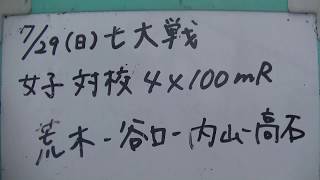 7/29(日)七大戦
女子対校4×100mR
荒木-谷口-内山-高石